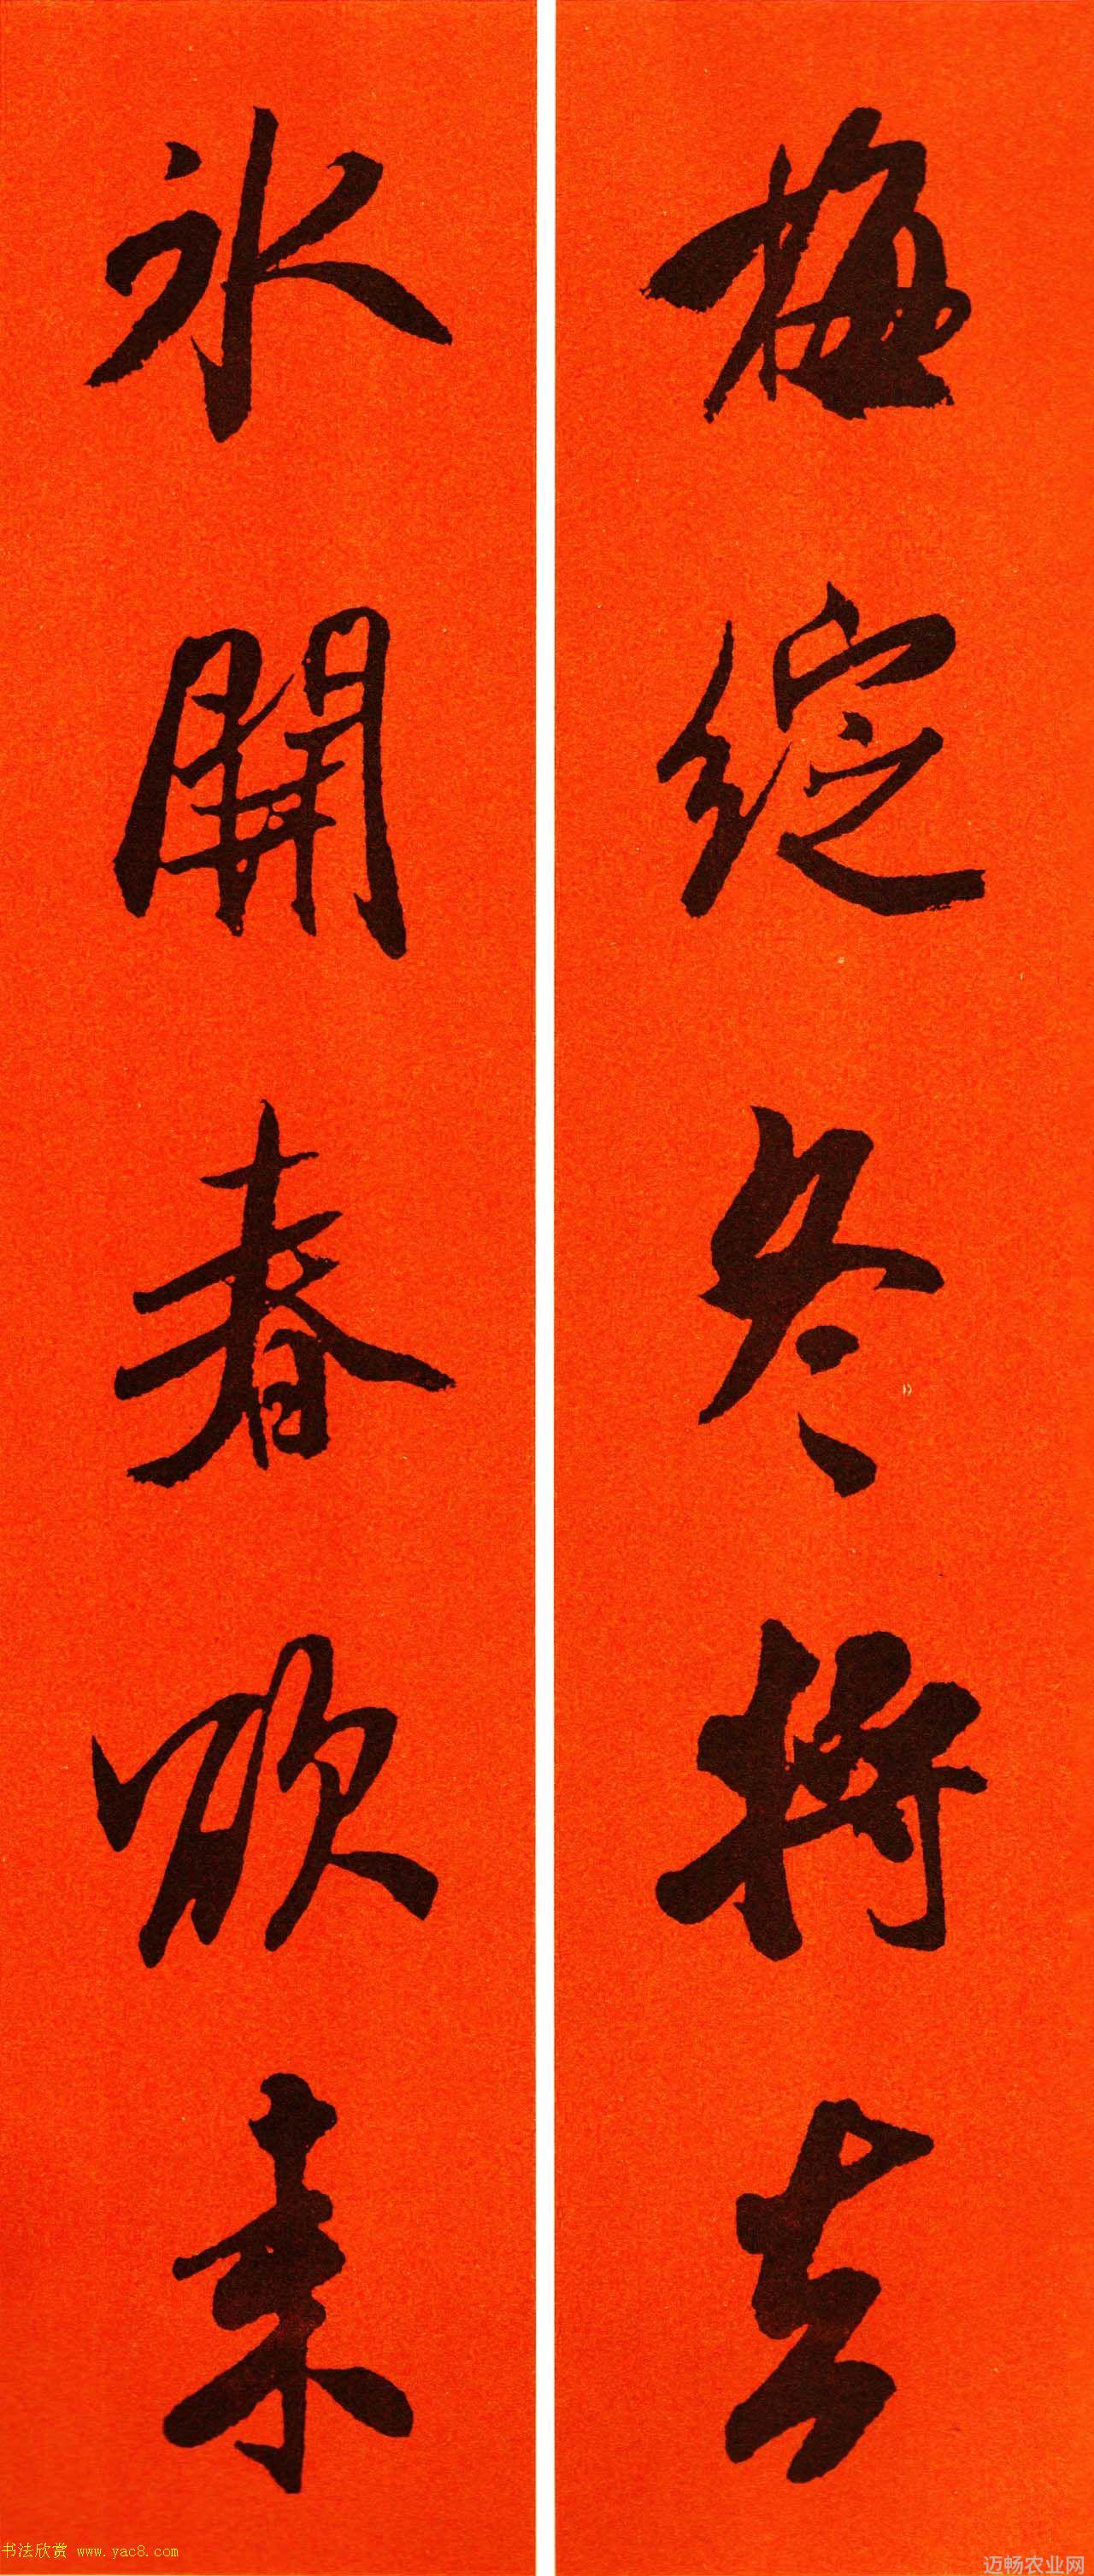 梅綻冬將去
氷開春欲来
书法欣赏 www.yac8.com
迈畅农业网